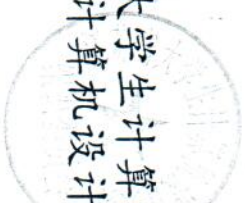 大学生计算
计算机设计